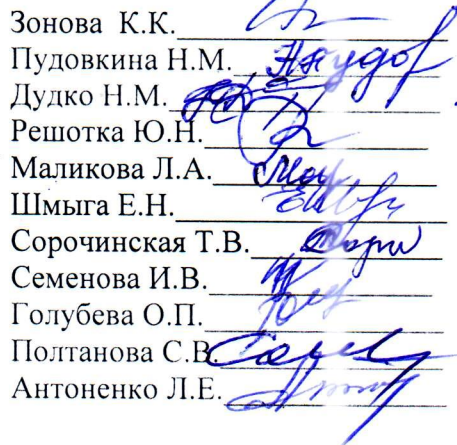 Зонова К.К.
Пудовкина Н.М.
Дудко Н.М.
Решотка Ю.Н.
Маликова Л.А.
Шмыга Е.Н.
Сорочинская Т.В.
Семенова И.В.
Голубева О.П.
Полтанова С.В.
Антоненко Л.Е.